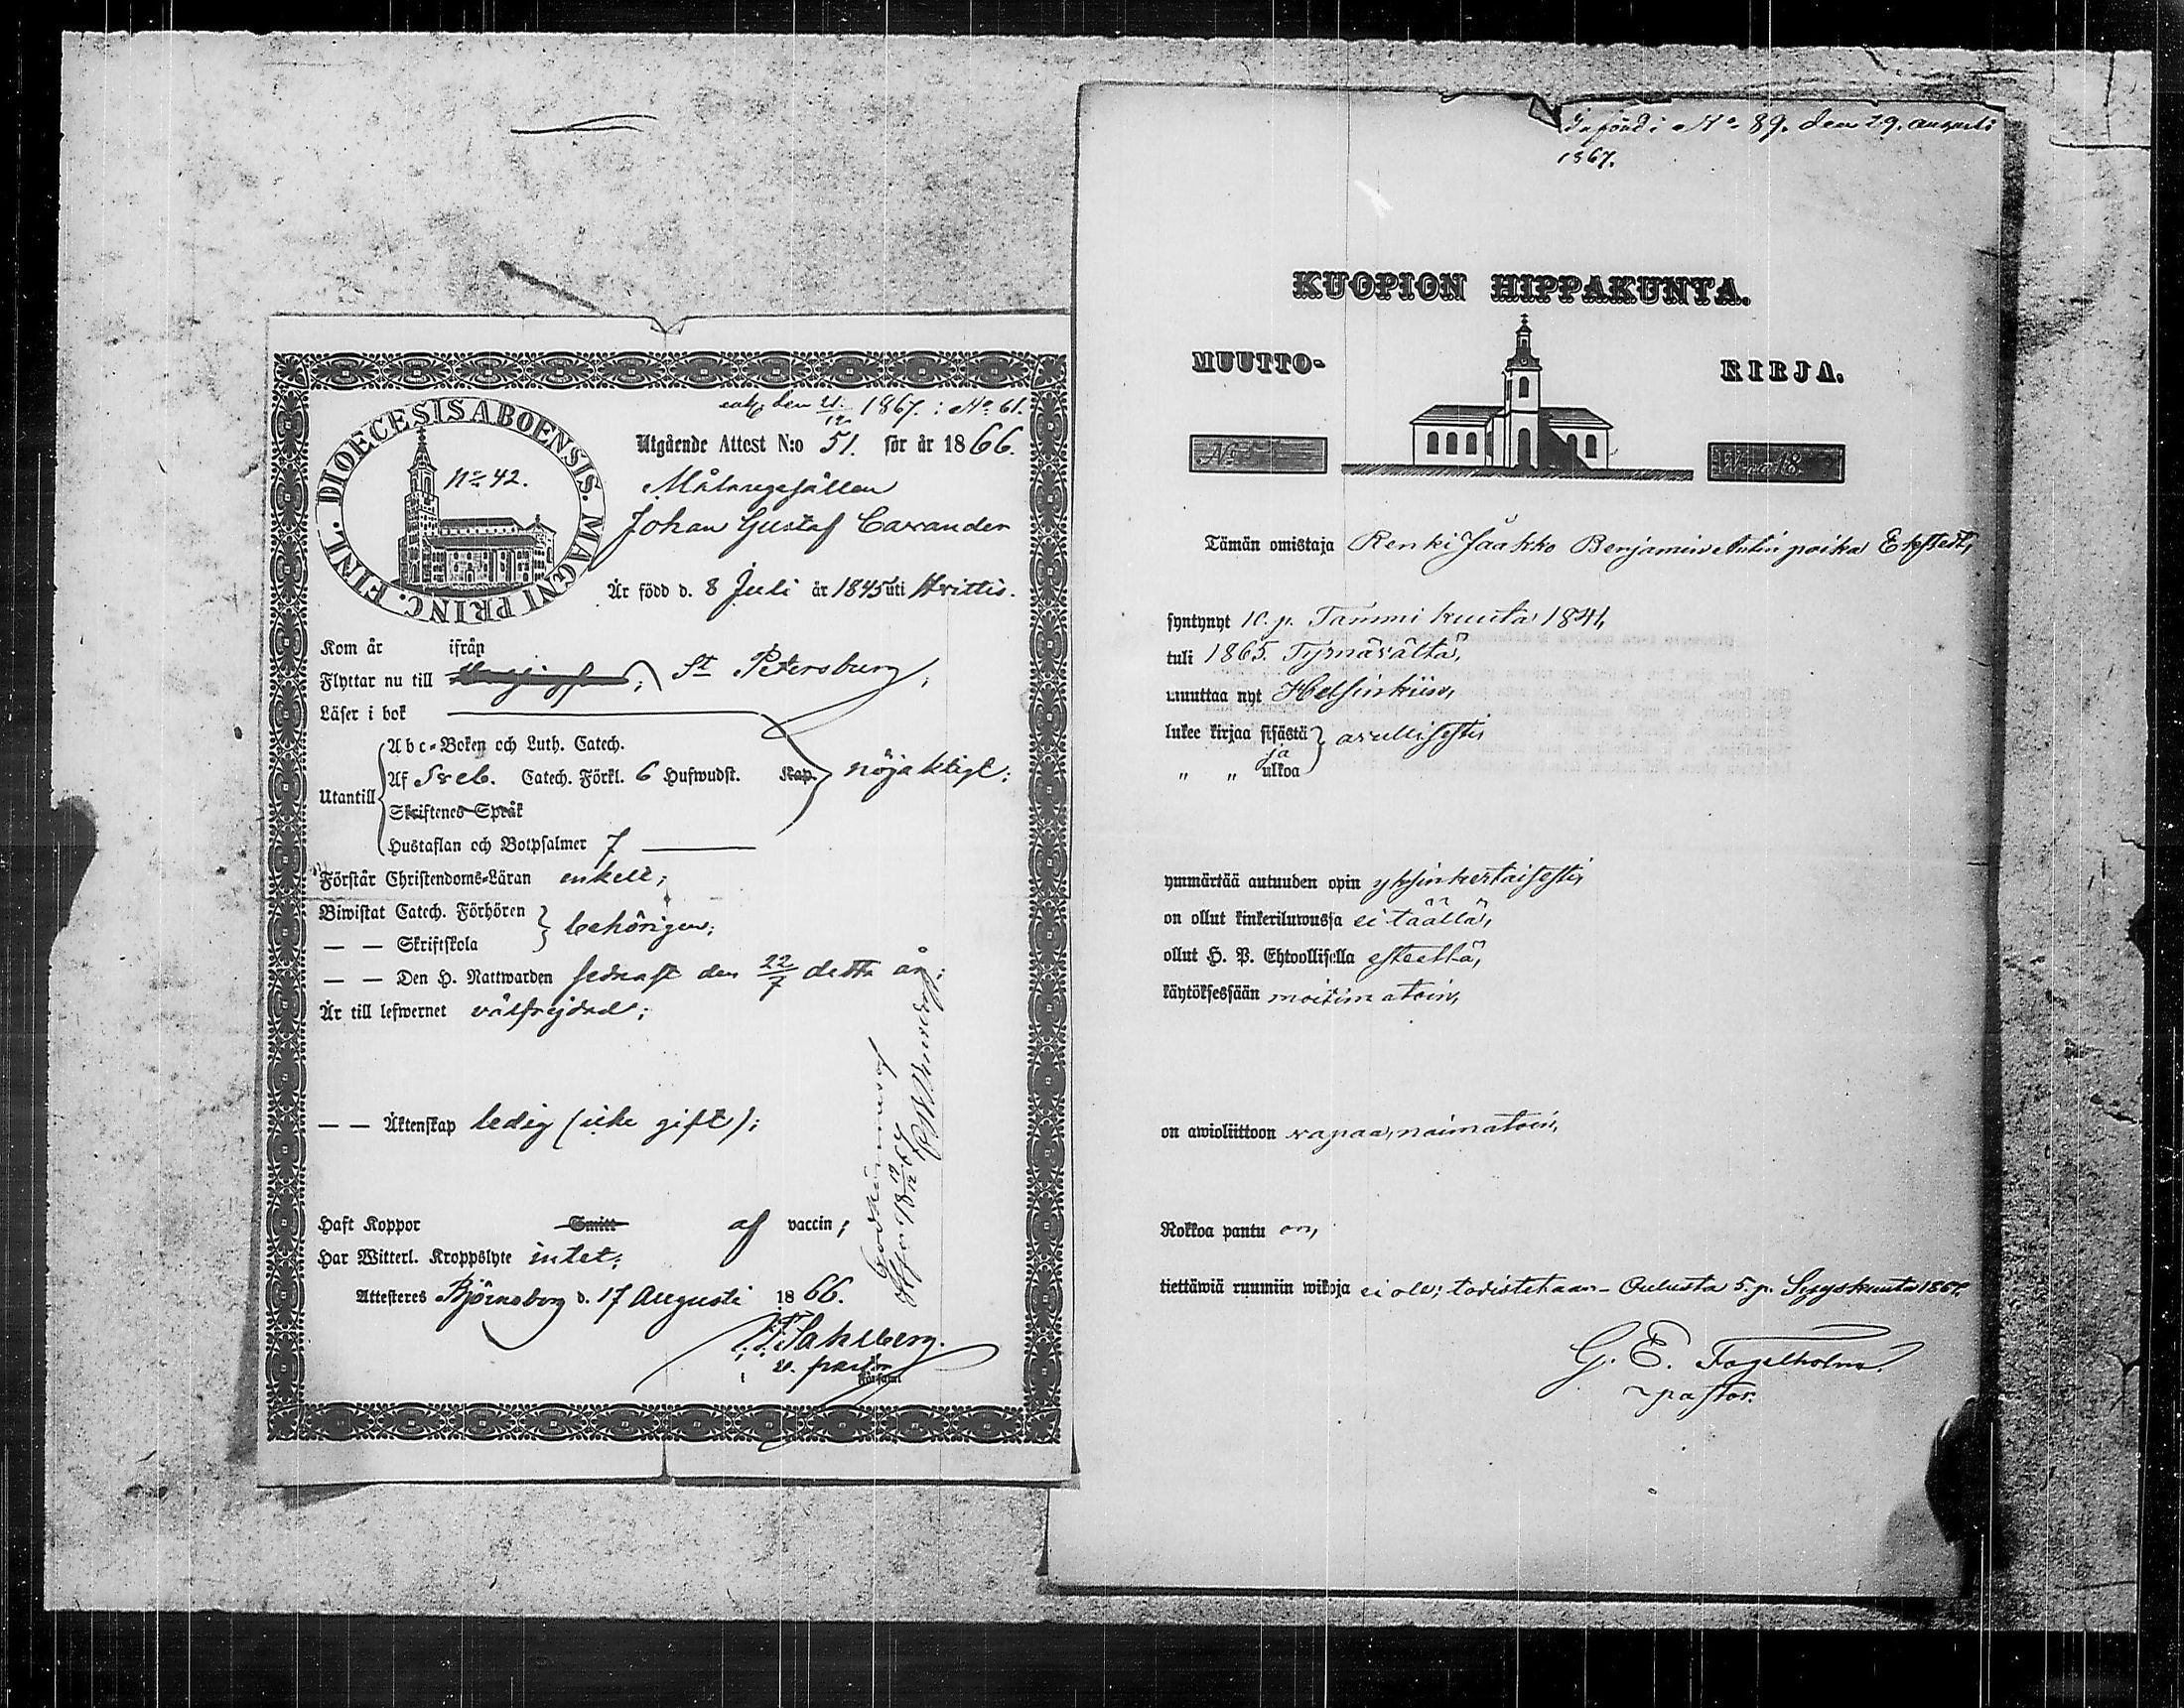 DIOECESIS ABOENSIS. MAGNI PRINC. FINL.
No 42.
den 21/12 1867. : No 61.
Utgående Attest N:o 51. för år 1866.
Målaregesällen
Johan Gustaf Carander
Är född d. 8 Juli år 1845 uti Hvittis.
Kom år ifrån
Flyttar nu till St Petersburg;
Läser i bok
Utantill
Abc-Boken och Luth. Catech.
Af Sveb. Catech. Förkl. 6 Hufwudst. Kap. nöjaktigt;
Skriftenes Språk
Hustaflan och Botpsalmer 7
Förstår Christendoms-Läran enkelt;
Biwistat Catech. Förhören
— — Skriftskola behörigen;
— — Den H. Nattwarden sednast den 22/7 detta år;
Är till lefwernet välfrejdad;
— — Äktenskap ledig (icke gift);
Haft Koppor Smitt af vaccin;
Har Witterl. Kroppslyte intet;
Attesteres Björneborg d. 17 Augusti 1866.
Sahlberg.
v. pastor
No 89. den 29. augusti
1867.
KUOPION HIPPAKUNTA.
MUUTTO-
KIRJA.
No
18
Tämän omistaja Renki Jaakko Benjamin Antin poika
syntynyt 10. p. Tammi kuuta 1841,
tuli 1865. Tyrnävältä,
muuttaa nyt Helsinkiin,
lukee kirjaa sisästä
ja
" " ulkoa
avullisesti
ymmärtää autuuden opin yksinkertaisesti,
on ollut kinkeriluwussa ei täällä,
ollut H. P. Ehtoollisella esteettä,
käytöksessään moitimatoin,
on awioliittoon vapaa, naimatoin,
Rokkoa pantu on,
tiettäwiä ruumiin wikoja ei ole; todistetaan - Oulusta 5. p. Syyskuuta 1867.
G. E. Fagelholm.
pastor.